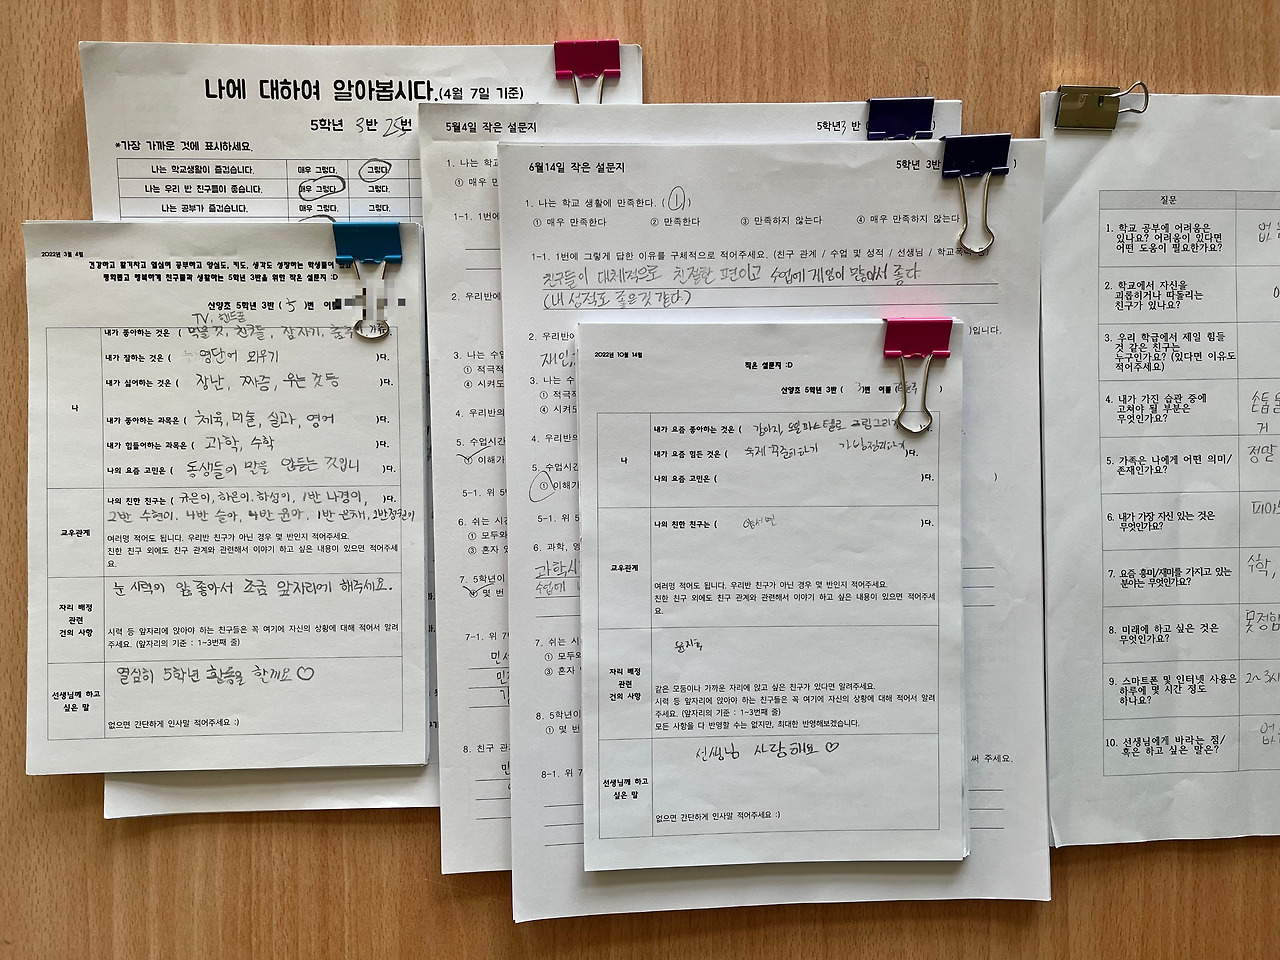 나에 대하여 알아봅시다.(4월 7일 기준)
5학년 3반 25번
*가장 가까운 것에 표시하세요.
나는 학교생활이 즐겁습니다. 매우 그렇다. 그렇다.
나는 우리 반 친구들이 좋습니다. 매우 그렇다. 그렇다.
나는 공부가 즐겁습니다. 매우 그렇다. 그렇다.
2022년 3월 4일
건강하고 활기차고 열심히 공부하고 양심도, 키도, 생각도 성장하는 학생들이
평화롭고 행복하게 친구들과 생활하는 5학년 3반을 위한 작은 설문지 :D
산양초 5학년 3반 ( 5 )번 이름
TV, 핸드폰
나
내가 좋아하는 것은 ( 먹을 것, 친구들, 잠자기, 춤추기
내가 잘하는 것은 ( 영단어 외우기 )다.
내가 싫어하는 것은 ( 장난, 짜증, 우는 것 등 )다.
내가 좋아하는 과목은 ( 체육, 미술, 실과, 영어 )다.
내가 힘들어하는 과목은 ( 과학, 수학
나의 요즘 고민은 ( 동생들이 말을 안듣는 것입니
교우관계
나의 친한 친구는 ( 규은이, 하은이, 하성이, 1반 나경이, )다.
2반 수현이, 4반 슬아, 4반 윤아, 1반
여러명 적어도 됩니다. 우리반 친구가 아닌 경우 몇 반인지 적어주세요.
친한 친구 외에도 친구 관계와 관련해서 이야기 하고 싶은 내용이 있으면 적어주세
요.
자리 배정
관련
건의 사항
눈 시력이 안좋아서 조금 앞자리에 해주세요.
시력 등 앞자리에 앉아야 하는 친구들은 꼭 여기에 자신의 상황에 대해 적어서 알려
주세요. (앞자리의 기준 : 1~3번째 줄)
선생님께 하고
싶은 말
열심히 5학년 활동을 할께요 ♡
없으면 간단하게 인사말 적어주세요 :)
5월4일 작은 설문지 5학년 3 반
1. 나는 학교
① 매우 만
1-1. 1번에
2. 우리반에
3. 나는 수업
① 적극적
④ 시켜도
4. 우리반의
5. 수업시간
① 이해가
5-1. 위 5번
6. 쉬는 시간
① 모두와
③ 혼자 있
7. 5학년이
① 몇 번
7-1. 위 7번
8. 친구 관계
6월14일 작은 설문지 5학년 3반
1. 나는 학교 생활에 만족한다. ( 1 )
① 매우 만족한다 ② 만족한다 ③ 만족하지 않는다 ④ 매우 만족하지 않는다
1-1. 1번에 그렇게 답한 이유를 구체적으로 적어주세요. (친구 관계 / 수업 및 성적 / 선생님 / 학교폭력 등)
친구들이 대체적으로 친절한 편이고 수업에 게임이 많아서 좋다
(내 성적도 좋은것 같다)
2. 우리반에 입니다.
3. 나는 수
① 적극적
④ 시켜도
4. 우리반
5. 수업시간
① 이해가
5-1. 위 5
6. 과학, 영
수업에
7. 쉬는 시
① 모두와
③ 혼자
8. 5학년이
① 몇 번
8-1. 위 7 써 주세요.
2022년 10월 14일
작은 설문지 :D
산양초 5학년 3반 ( 3)번 이름 ( )
나
내가 요즘 좋아하는 것은 ( 강아지, 오일파스텔로 그림그리기 )다.
내가 요즘 힘든 것은 ( 숙제 꾸준히하기 )다.
나의 요즘 고민은 ( )다.
교우관계
나의 친한 친구는 ( )다.
여러명 적어도 됩니다. 우리반 친구가 아닌 경우 몇 반인지 적어주세요.
친한 친구 외에도 친구 관계와 관련해서 이야기 하고 싶은 내용이 있으면 적어주세
요.
자리 배정
관련
건의 사항
같은 모둠이나 가까운 자리에 앉고 싶은 친구가 있다면 알려주세요.
시력 등 앞자리에 앉아야 하는 친구들은 꼭 여기에 자신의 상황에 대해 적어서 알려
주세요. (앞자리의 기준 : 1~3번째 줄)
모든 사항을 다 반영할 수는 없지만, 최대한 반영해보겠습니다.
선생님께 하고
싶은 말
선생님 사랑해요 ♡
없으면 간단하게 인사말 적어주세요 :)
질문
1. 학교 공부에 어려움은
있나요? 어려움이 있다면
어떤 도움이 필요한가요?
2. 학교에서 자신을
괴롭히거나 따돌리는
친구가 있나요?
3. 우리 학급에서 제일 힘들
것 같은 친구는
누구인가요? (있다면 이유도
적어주세요)
4. 내가 가진 습관 중에
고쳐야 될 부분은
무엇인가요?
손톱
5. 가족은 나에게 어떤 의미/
존재인가요?
정말
6. 내가 가장 자신 있는 것은
무엇인가요?
7. 요즘 흥미/재미를 가지고 있는
분야는 무엇인가요?
8. 미래에 하고 싶은 것은
무엇인가요?
못정함
9. 스마트폰 및 인터넷 사용은
하루에 몇 시간 정도
하나요?
2~3시
10. 선생님에게 바라는 점/
혹은 하고 싶은 말은?